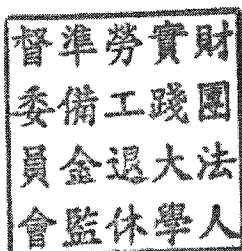 財團法人
實踐大學
勞工退休
準備金監
督委員會